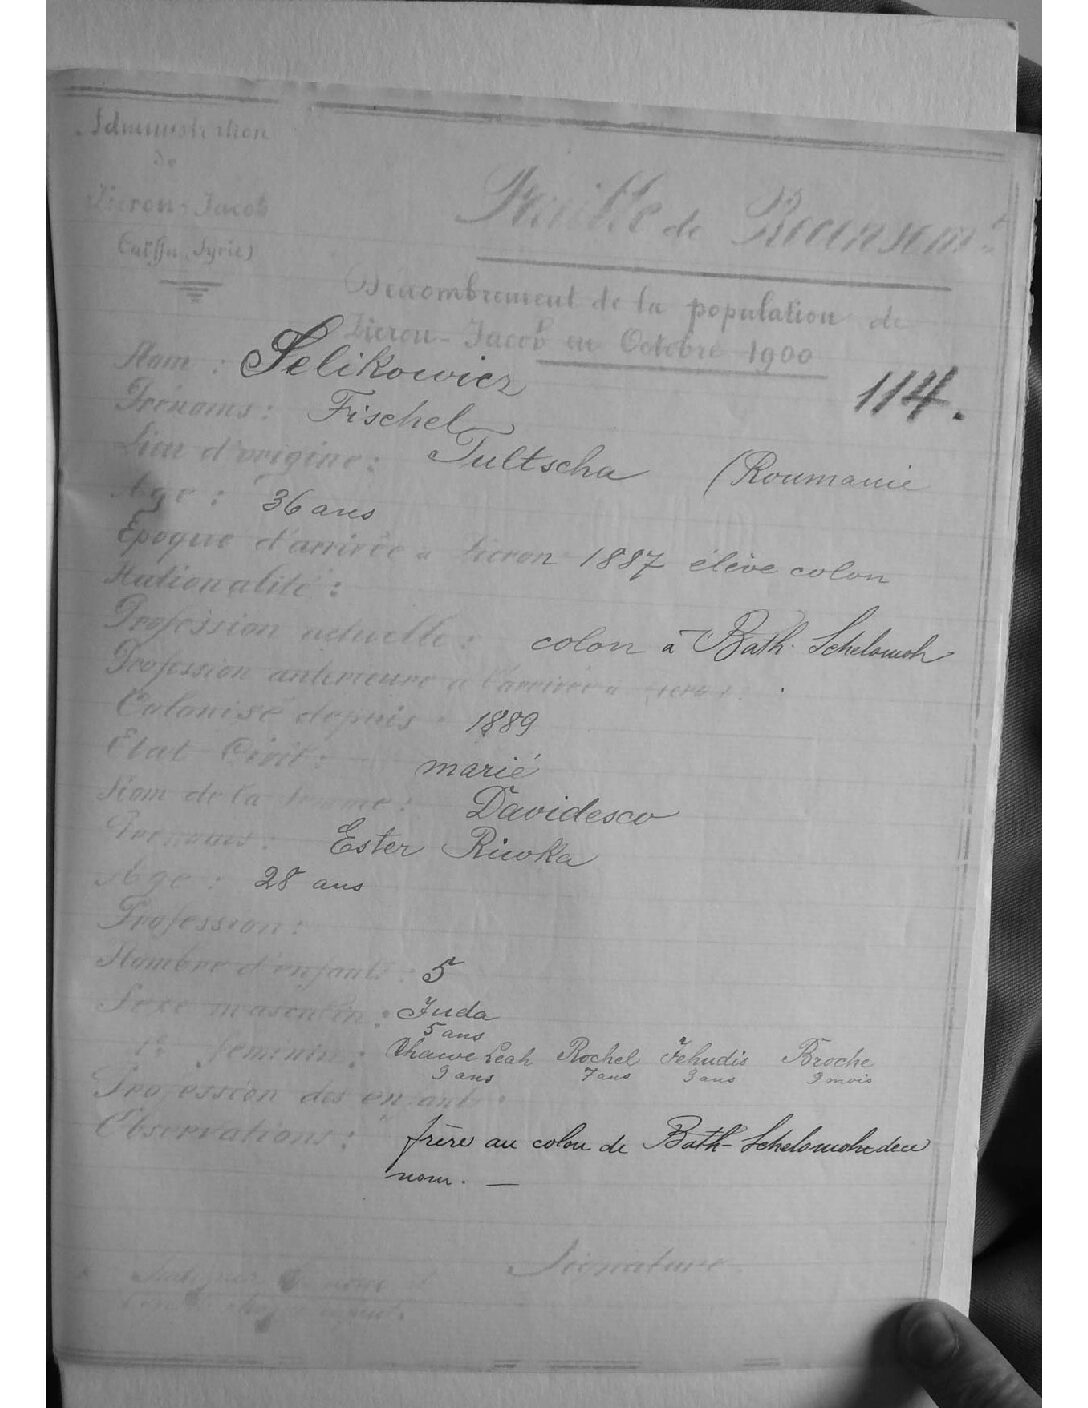 Administration
de
Zicron-Jacob
Caïffa, Syrie)
Feuille de Recensem.t
Dénombrement de la population de
Zicron-Jacob en Octobre 1900
114.
Nom : Selikowicz
Prénoms : Fischel
Lieu d'origine : Tultscha (Roumanie
Age : 36 ans
Epoque d'arrivée a Zicron 1887 élève colon
Nationalité :
Profession actuelle : colon à Bath-Schelomoh
Profession antérieure à l'arrivée a Zicron :
Colonisé depuis : 1889
Etat-Civil : marié
Nom de la femme : Davidesco
Prénoms : Ester Riwka
Age : 28 ans
Profession :
Nombre d'enfants : 5
Sexe masculin : Juda
5 ans
féminin : Chawe Leah Rochel Jehudis Broche
9 ans 7 ans 3 ans 9 mois
Profession des enfants :
Observations : frère au colon de Bath-Schelomoh de
nom. —
Signature